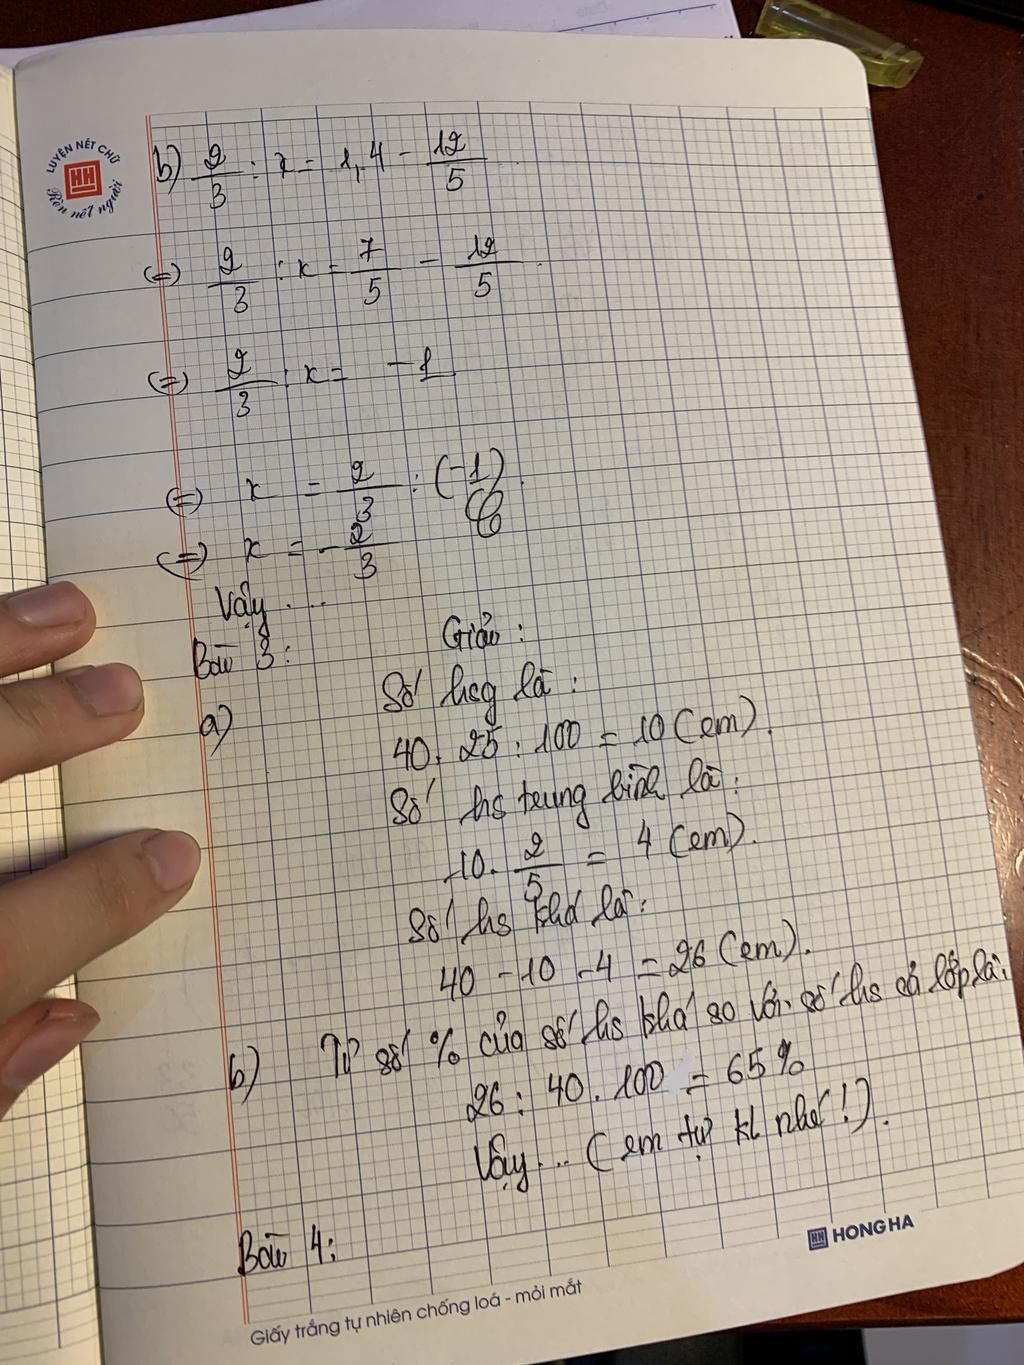 LUYỆN NẾT CHỮ
HH
Rèn nết người
b) 2/3 : x = 1,4 - 12/5
(=) 2/3 : x = 7/5 - 12/5
(=) 2/3 : x = -1
(=) x = 2/3 : (-1)
(=) x = -2/3
Vậy ....
Bài 3: Giải:
a) Số hsg là:
40 . 25 : 100 = 10 (em).
Số hs trung bình là:
10 . 2/5 = 4 (em).
Số hs khá là:
40 - 10 - 4 = 26 (em).
b) Tỉ số % của số hs khá so với số hs cả lớp là:
26 : 40 . 100 = 65%
Vậy ... (em tự kl nhé!).
Bài 4:
HH HONG HA
Giấy trắng tự nhiên chống loá - mỏi mắt